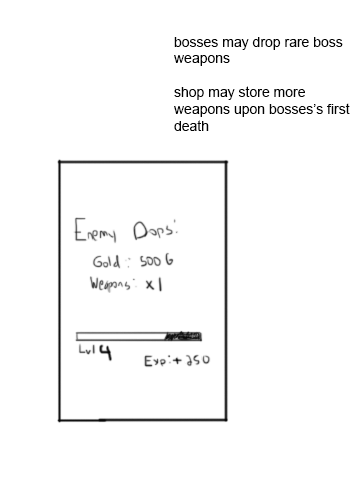 bosses may drop rare boss
weapons
shop may store more
weapons upon bosses's first
death
Enemy Dops:
Gold : 500 G
Weapons: x1
Lvl 4
Exp:+ 250